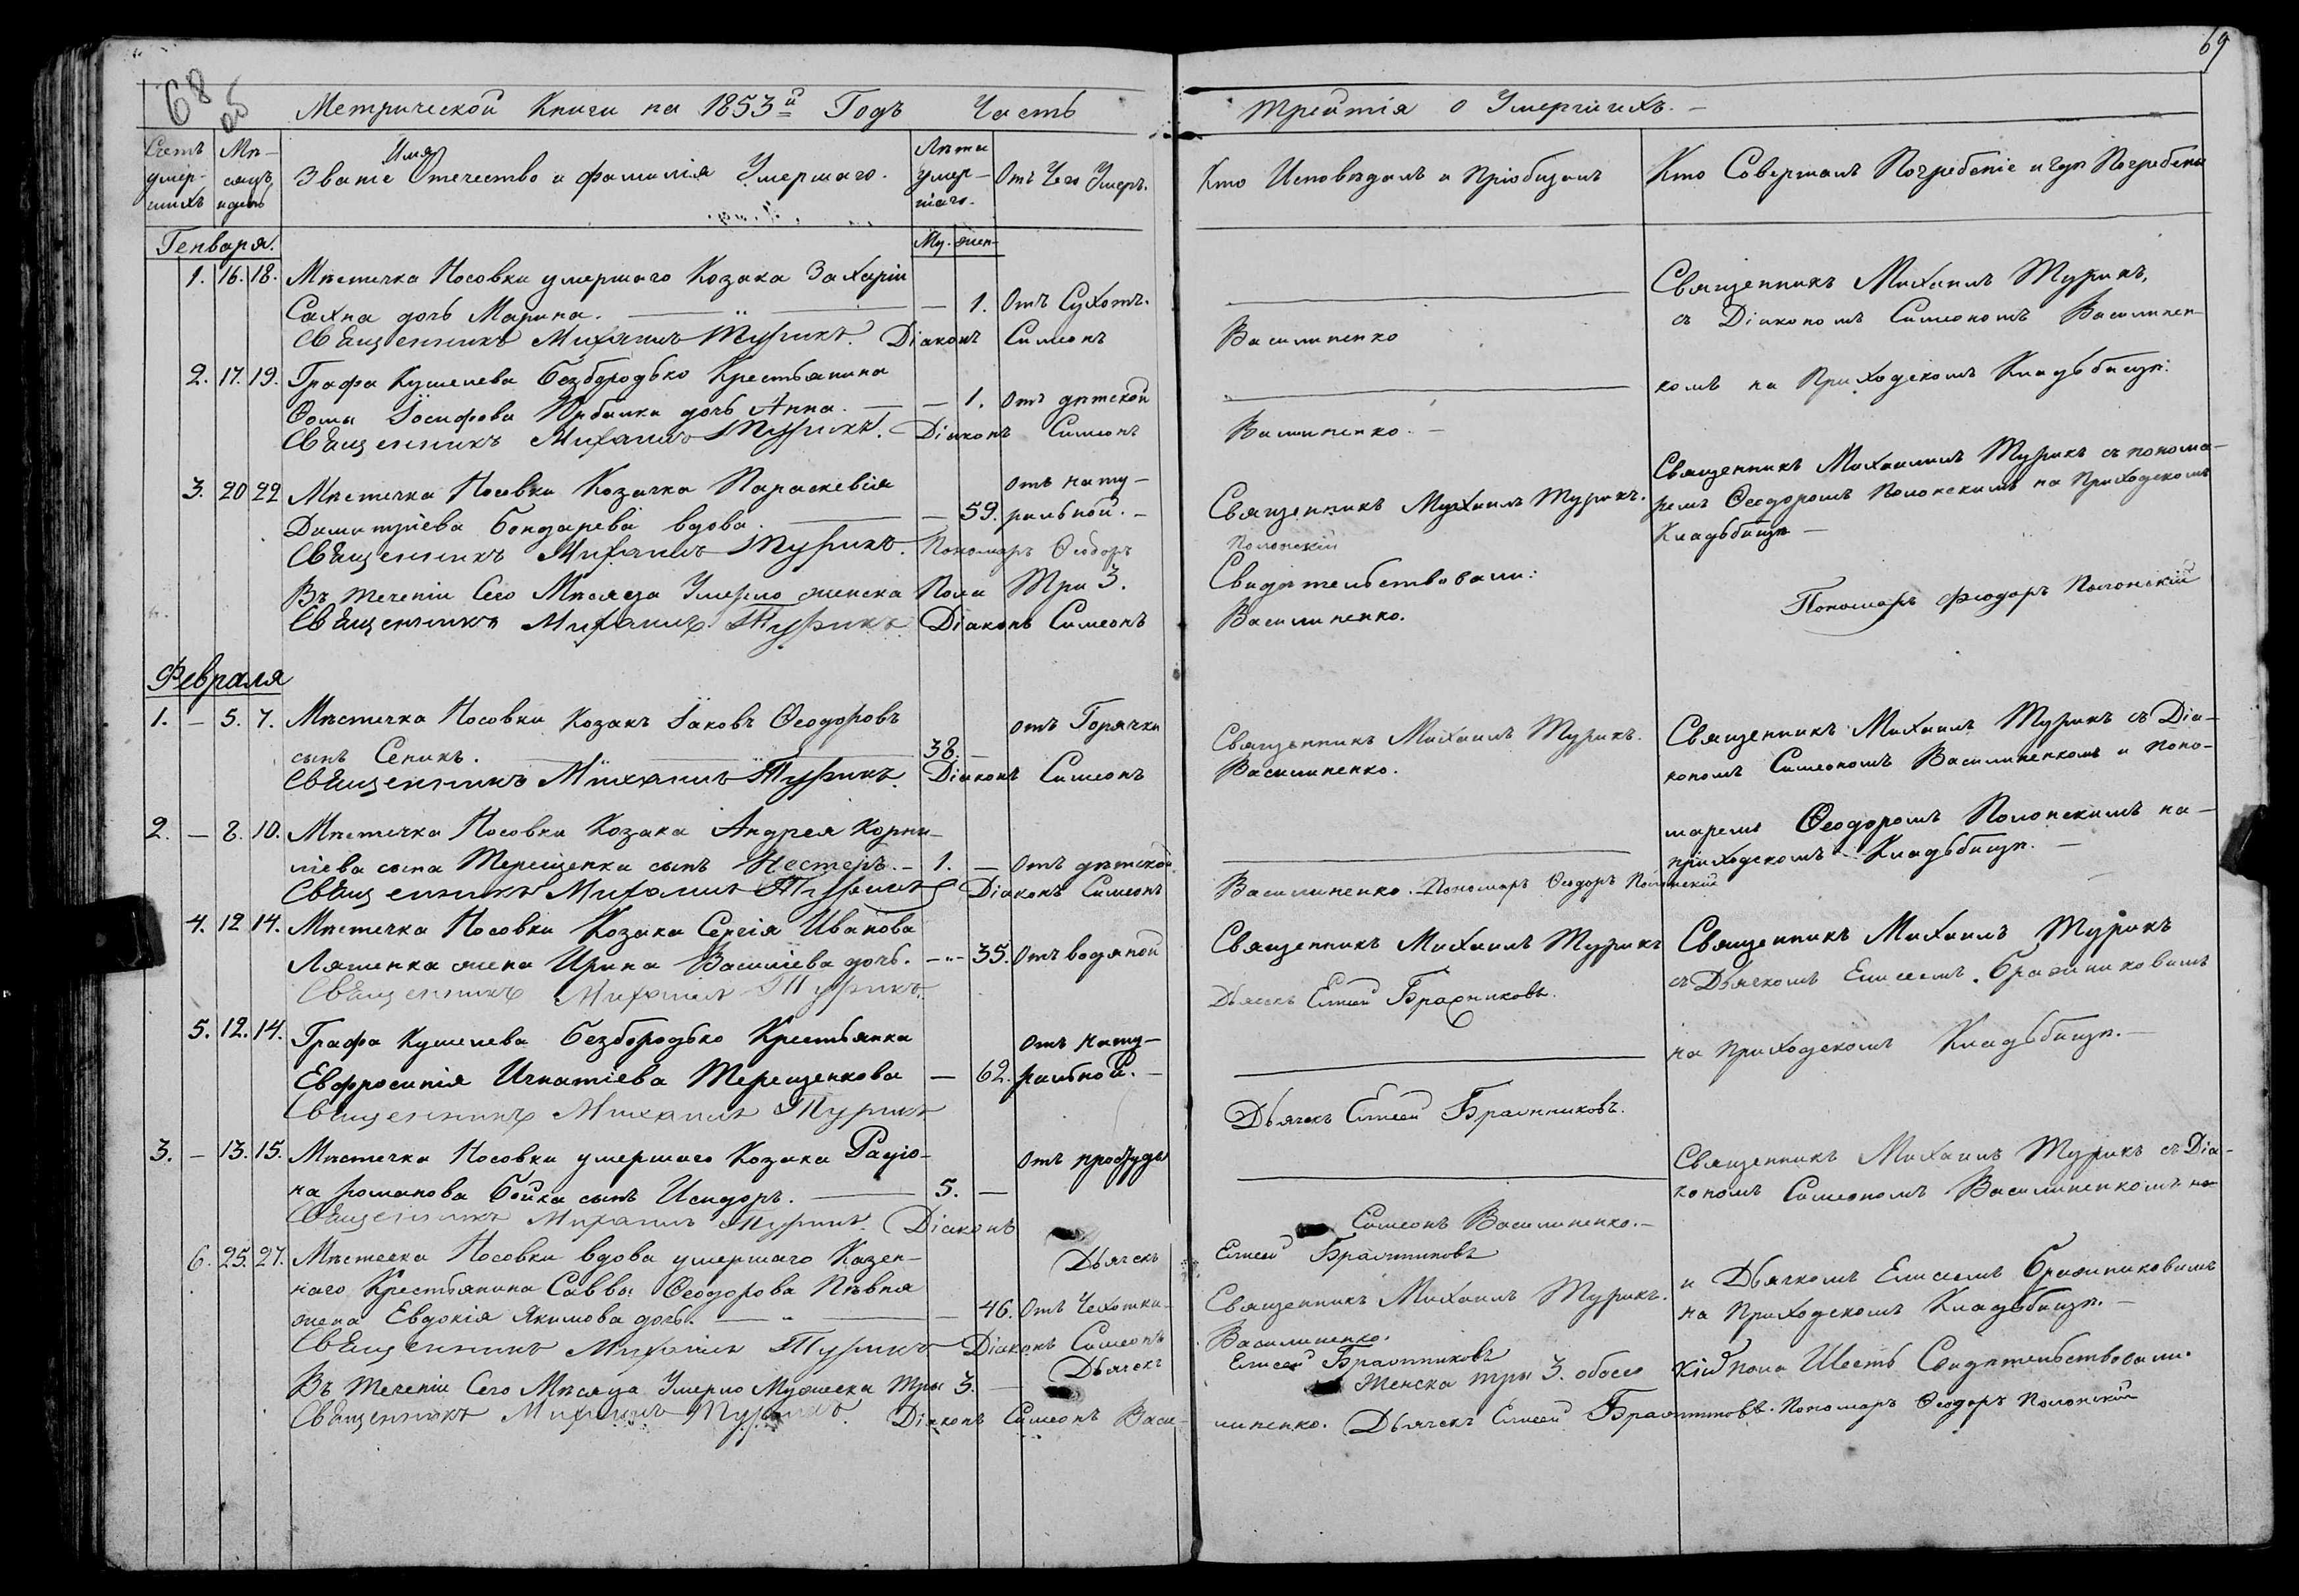 68 об
69
Метрической Книги на 1853й Годъ Часть
третія о Умершихъ. —
Счетъ умер-шихъ
Мѣ-сяцъ, и день
Имя
Званіе Отечество и фамилія Умершаго.
Лѣта умер-шаго.
Отъ Чего Умеръ.
Кто Исповѣдалъ и Пріобщалъ
Кто Совершалъ Погребеніе и гдѣ Погребены
Генваря. Му. жен.
1. 16. 18. Мѣстечка Носовки умершаго Козака Захаріи
Сахна дочь Марина. — 1. Отъ Сухотъ.
Священникъ Михаилъ Турикъ. Діаконъ Симеонъ Василиненко
Священникъ Михаилъ Турикъ,
съ Діакономъ Симеономъ Василинен-
комъ на Приходскомъ Кладьбищѣ.
2. 17. 19. Графа Кушелева Безбородько Крестьянина
Фомы Іосифова дочь Анна. — 1. Отъ дѣтской
Священникъ Михаилъ Турикъ. Діаконъ Симеонъ Василиненко. —
3. 20 22 Мѣстечка Носовки Козачка Параскевія Отъ нату-
Димитріева Бондарева вдова. — 59. ральной. —
Священникъ Михаилъ Турикъ.
Священникъ Михаилъ Турикъ съ понома-
ремъ Ѳеодоромъ Полонскимъ на Приходскомъ
Кладьбищѣ —
Священникъ Михаилъ Турикъ. Пономарь Ѳеодоръ Полонскій
Въ теченіи Сего Мѣсяца Умерло женска Пола Три 3. Свидѣтельствовали:
Священникъ Михаилъ Турикъ Діаконъ Симеонъ Василиненко.
Пономарь Феодоръ Полонскій
Февраля
1. — 5. 7. Мѣстечка Носовки Козакъ Іаковъ Ѳеодоровъ отъ Горячки
сынъ Сеникъ. 38. —
Священникъ Михаилъ Турикъ. Діаконъ Симеонъ Василиненко.
Священникъ Михаилъ Турикъ.
Священникъ Михаилъ Турикъ съ Діа-
кономъ Симеономъ Василиненкомъ и поно-
маремъ Ѳеодоромъ Полонскимъ на —
приходскомъ Кладьбищѣ. —
2. — 8. 10. Мѣстечка Носовки Козака Андрея Корни-
лiева сына Терещенка сынъ Нестеръ. — 1. — Отъ дѣтской
Священникъ Михаилъ Турикъ Діаконъ Симеонъ Василиненко. Пономарь Ѳеодоръ Полонскій
4. 12 14. Мѣстечка Носовки Козака Сергія Иванова
Ляшенка жена Ирина Василіева дочь. — 35. Отъ водяной
Священникъ Михаилъ Турикъ.
Священникъ Михаилъ Турикъ
Дьячекъ Елисей Бражниковъ.
Священникъ Михаилъ Турикъ
съ Дьячкомъ Елисеемъ Бражниковымъ
на приходскомъ Кладьбищѣ. —
5. 12. 14. Графа Кушелева Безбородько Крестьянка Отъ нату-
Евфросинія Игнатіева Терещенкова — 62. ральной. —
Священникъ Михаилъ Турикъ
Дьячекъ Елисей Бражниковъ.
3. — 13. 15. Мѣстечка Носовки умершаго Козака Раціо- Отъ простуды
на романова Бойка сынъ Исидоръ. — 5. —
Священникъ Михаилъ Турикъ. Діаконъ Симеонъ Василиненко. —
Дьячекъ Елисей Бражниковъ
Священникъ Михаилъ Турикъ съ Діа-
кономъ Симеономъ Василиненкомъ
и Дьячкомъ Елисеемъ Бражниковымъ
на Приходскомъ Кладьбищѣ. —
6. 25. 27. Мѣстечка Носовки вдова умершаго Казен-
наго Крестьянина Саввы Ѳеодорова Пѣвня
жена Евдокія Якимова дочь. — 46. Отъ Чехотки.
Священникъ Михаилъ Турикъ.
Священникъ Михаилъ Турикъ Діаконъ Симеонъ Василиненко.
Дьячекъ Елисей Бражниковъ
Въ теченіи Сего Мѣсяца Умерло Мужеска три 3. Женска три 3. обоего пола Шесть Свидѣтельствовали.
Священникъ Михаилъ Турикъ. Діаконъ Симеонъ Васи-
линенко. Дьячекъ Елисей Бражниковъ. Пономарь Ѳеодоръ Полонскій